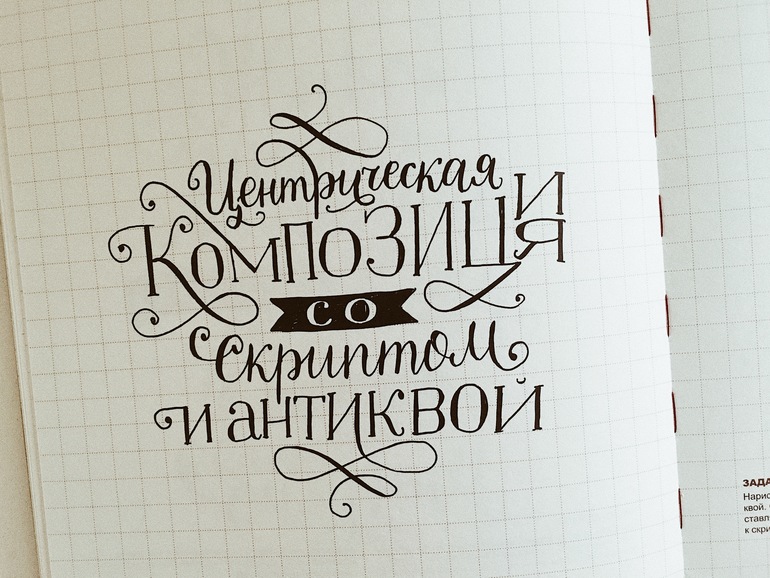 Центрическая
Композиция
со
скриптом
и антиквой
ЗАДА
Нарис
квой.
ставл
к скри